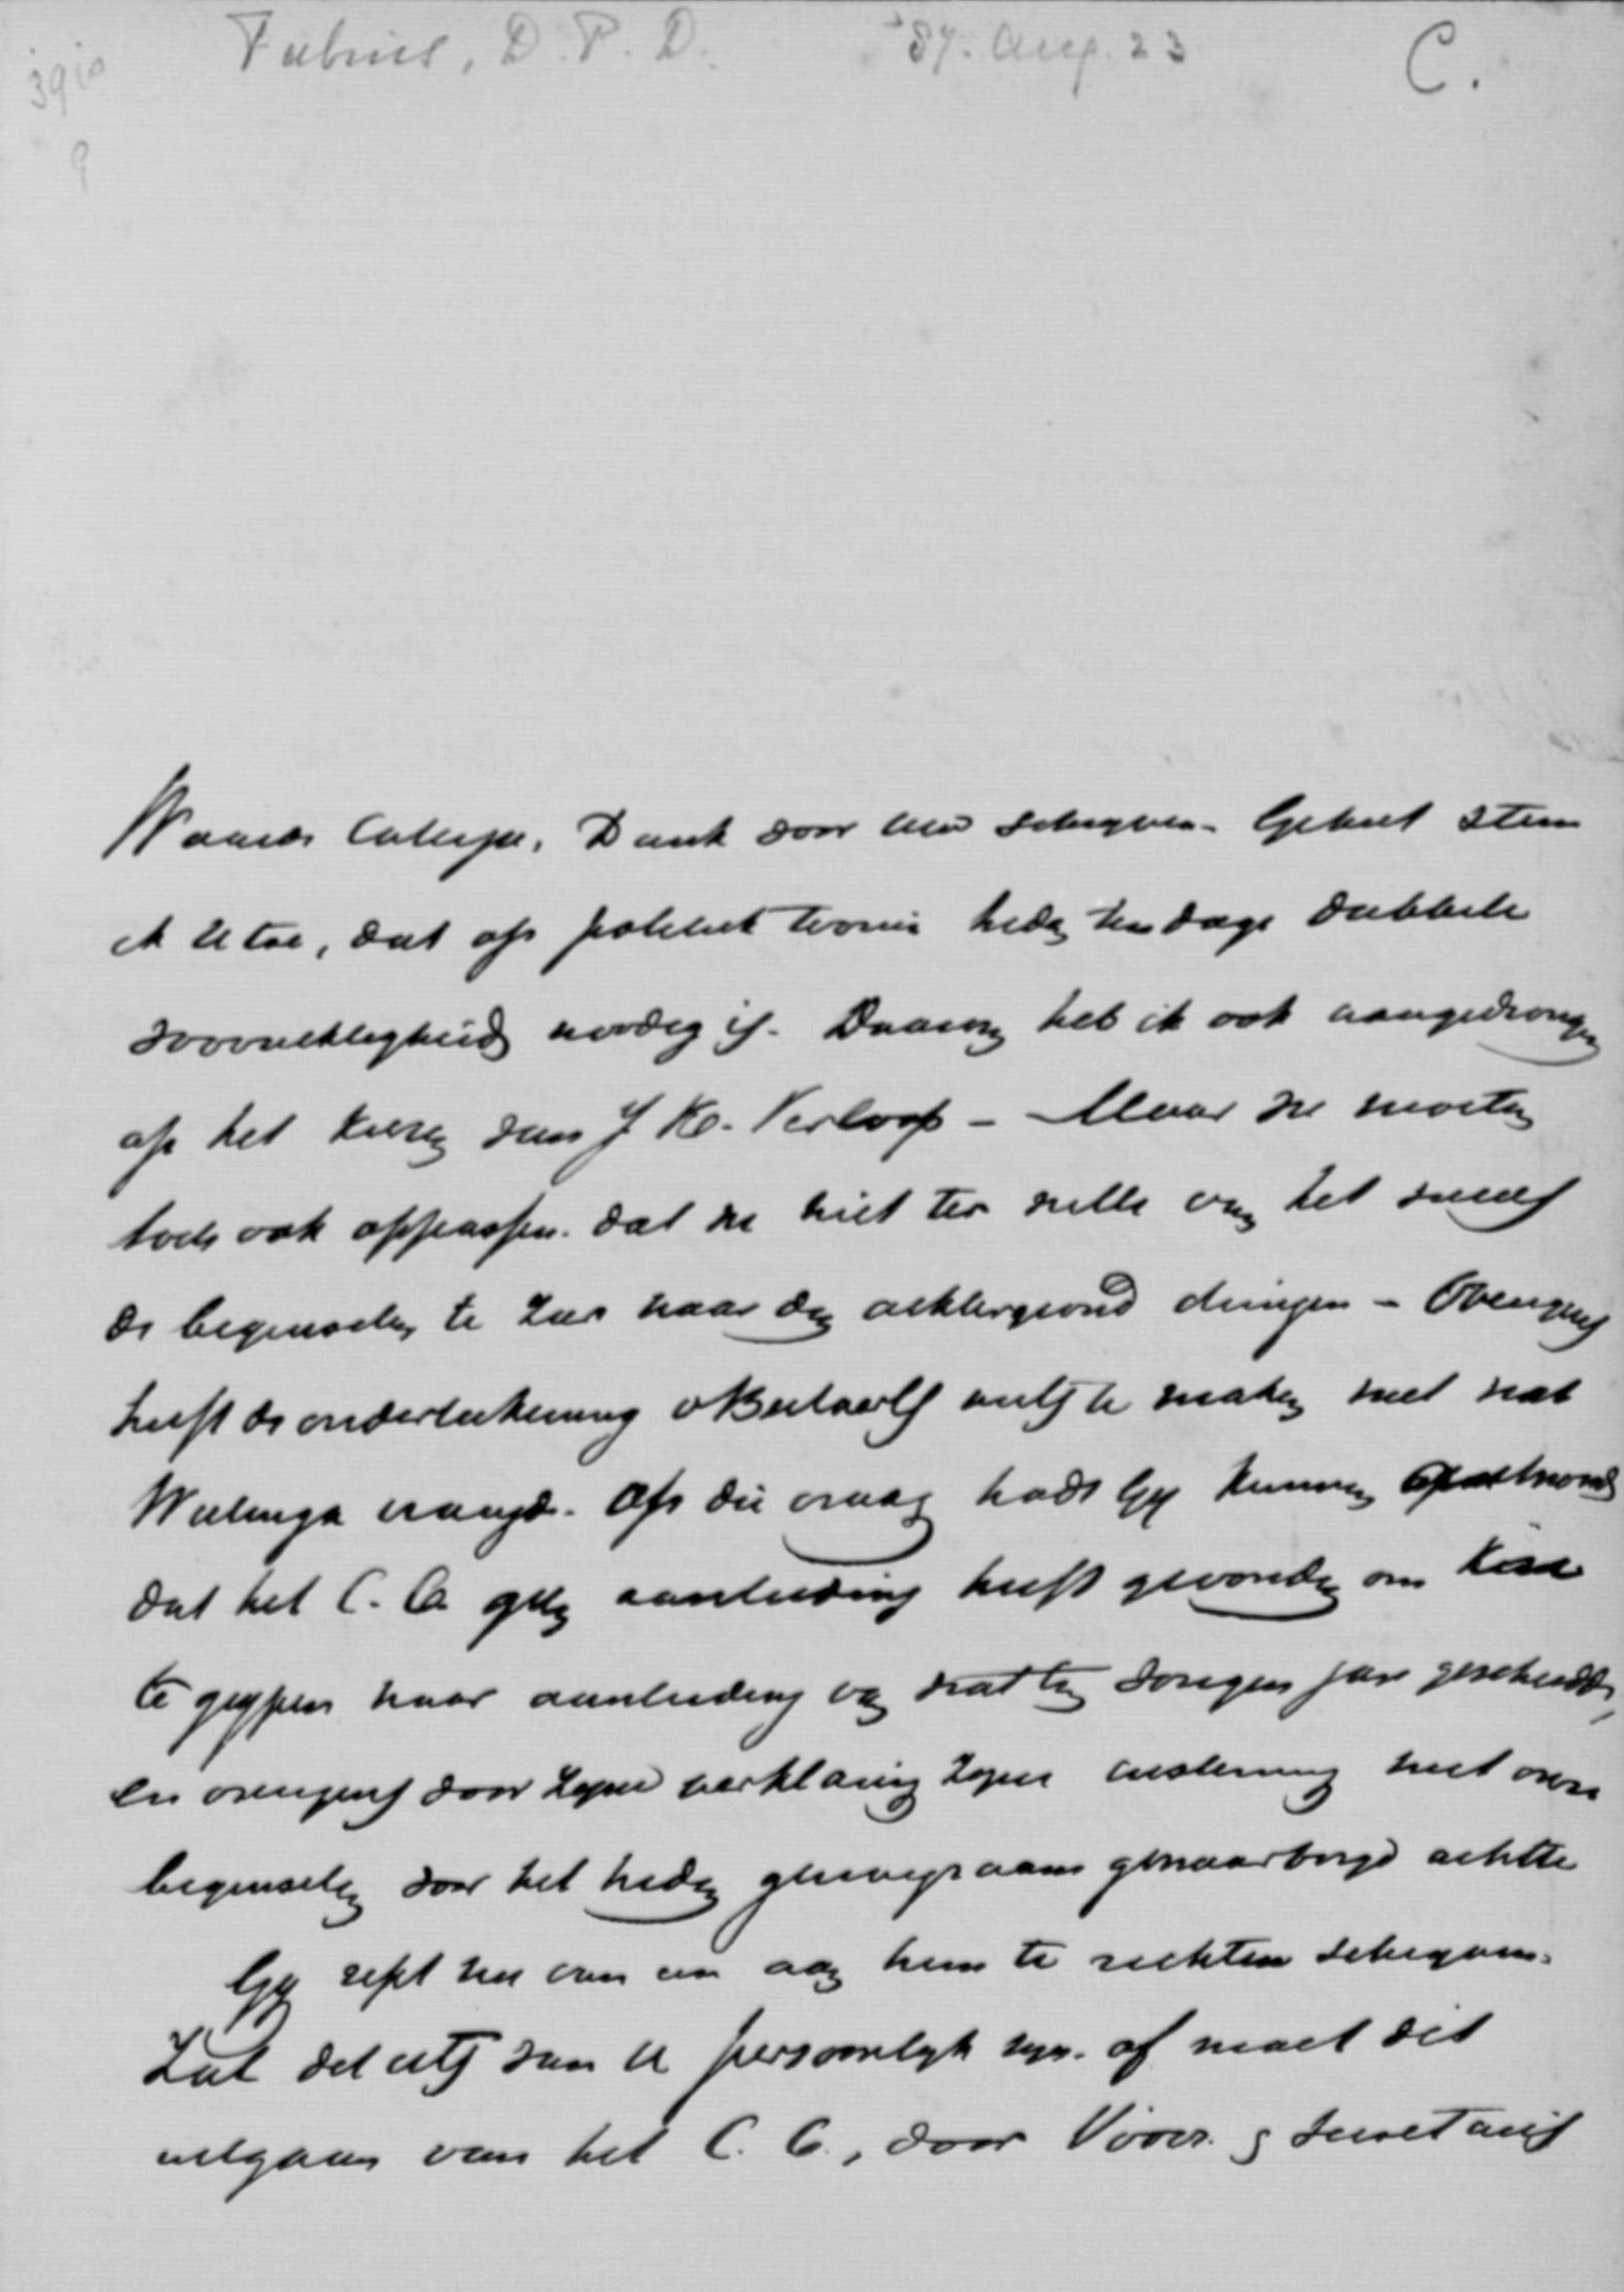 Fabius, D.P.D. '87. Aug. 23 C.
9
Waarde Collega, Dank voor uw schrijven. Geheel stem
ik U toe, dat op politiek terrein heden ten dage dubbele
voorzichtigheid noodig is. Daarom heb ik ook aangedrongen
op het kiezen van J Kc. Verloop - Maar we moeten
toch ook oppassen. dat we niet ter wille van het succes
de beginselen te zeer naar den achtergrond dringen - Overigens
heeft de onderteekening v Beelaerts niets te maken met wat
Wielinga vraagt. Op die vraag hadt Gij kunnen antwoorden
dat het C. C. geen aanleiding heeft gevonden om
te grijpen naar aanleiding van wat ten vorigen jare geschiedde,
en overigens door zijne verklaring zijne instemming met onze
beginselen voor het heden genoegzaam gewaarborgd achtte
Gij rept nu van een aan hem te richten schrijven.
Zal dat iets van U persoonlijk zijn. of moet dit
uitgaan van het C. C., door Voorz. & Secretaris